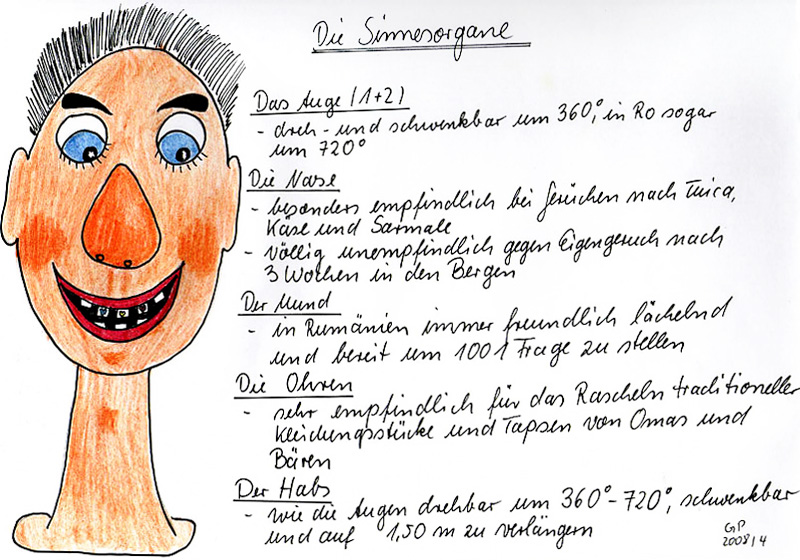 Die Sinnesorgane
Das Auge (1+2)
- dreh- und schwenkbar um 360°, in Ro sogar
um 720°
Die Nase
- besonders empfindlich bei Gerüchen nach Tuica,
Käse und Sarmale
- völlig unempfindlich gegen Eigengeruch nach
3 Wochen in den Bergen
Der Mund
- in Rumänien immer freundlich lächelnd
und bereit um 1001 Frage zu stellen
Die Ohren
- sehr empfindlich für das Rascheln traditioneller
Kleidungsstücke und Tapsen von Omas und
Bären
Der Hals
- wie die Augen drehbar um 360°-720°, schwenkbar
und auf 1,50 m zu verlängern
GP
2008/4